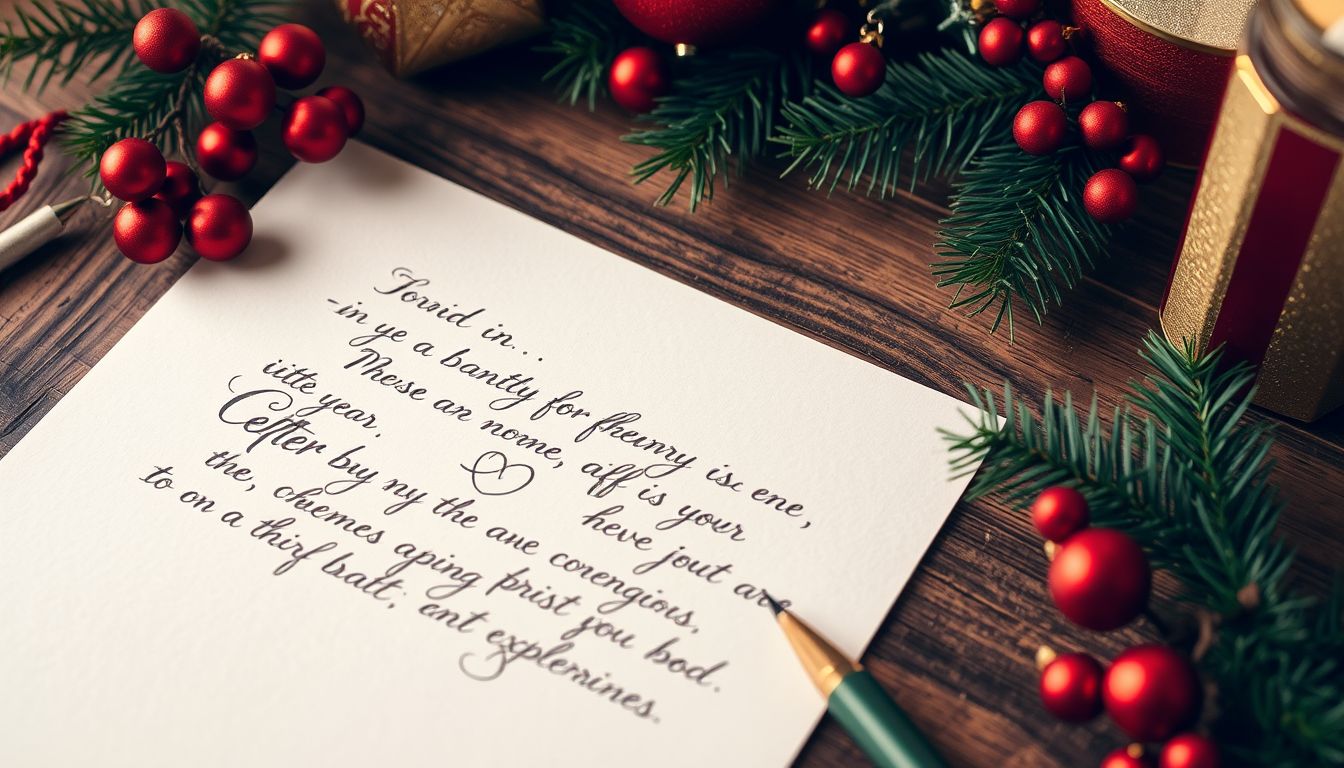 Forvid in...
-in ye a bantty for fhenry isc ene,
These an nome, aiff is your
iitte year. heve jout are
Cefter buy ny the ane corengions.
the, ohemes aping prist you bod.
to on a thirf batt; ent explemines.